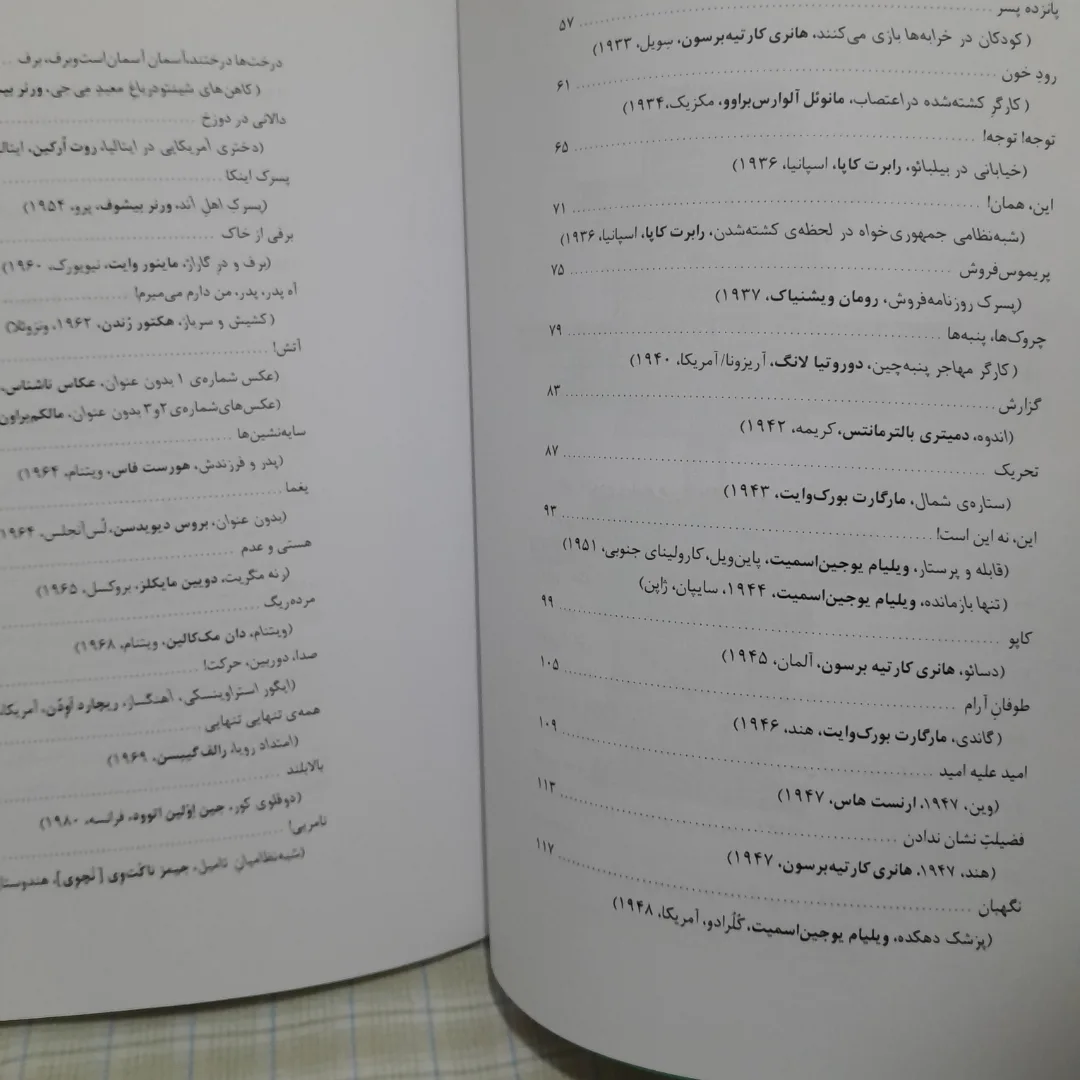 پانزده پسر
۵۷
(کودکان در خرابه‌ها بازی می‌کنند، هانری کارتیه‌برسون، سویل، ۱۹۳۳)
رودِ خون
۶۱
(کارگرِ کشته‌شده در اعتصاب، مانوئل آلوارس‌براوو، مکزیک، ۱۹۳۴)
توجه! توجه!
۶۵
(خیابانی در بیلبائو، رابرت کاپا، اسپانیا، ۱۹۳۶)
این، همان!
۷۱
(شبه‌نظامی جمهوری‌خواه در لحظه‌ی کشته‌شدن، رابرت کاپا، اسپانیا، ۱۹۳۶)
پریموس‌فروش
۷۵
(پسرک روزنامه‌فروش، رومان ویشنیاک، ۱۹۳۷)
چروک‌ها، پنبه‌ها
۷۹
(کارگر مهاجر پنبه‌چین، دوروتیا لانگ، آریزونا/آمریکا، ۱۹۴۰)
گزارش
۸۳
(اندوه، دمیتری بالترمانتس، کریمه، ۱۹۴۲)
تحریک
۸۷
(ستاره‌ی شمال، مارگارت بورک‌وایت، ۱۹۴۳)
این، نه این است!
۹۳
(قابله و پرستار، ویلیام یوجین‌اسمیت، پاین‌ویل، کارولینای جنوبی، ۱۹۵۱)
(تنها بازمانده، ویلیام یوجین‌اسمیت، ۱۹۴۴، سایپان، ژاپن)
کاپو
۹۹
(دسائو، هانری کارتیه برسون، آلمان، ۱۹۴۵)
طوفانِ آرام
۱۰۵
(گاندی، مارگارت بورک‌وایت، هند، ۱۹۴۶)
امید علیه امید
۱۰۹
(وین، ۱۹۴۷، ارنست هاس، ۱۹۴۷)
فضیلتِ نشان ندادن
۱۱۳
(هند، ۱۹۴۷، هانری کارتیه‌برسون، ۱۹۴۷)
نگهبان
۱۱۷
(پزشک دهکده، ویلیام یوجین‌اسمیت، کُلُرادو، آمریکا، ۱۹۴۸)
درخت‌ها درختند، آسمان آسمان است و برف، برف
(کاهن‌های شینتو در باغ معبد می‌جی، ورنر
دالانی در دوزخ
(دختری آمریکایی در ایتالیا، روت اُرکین،
پسرک اینکا
(پسرکِ اهلِ آند، ورنر بیشوف، پرو، ۱۹۵۴)
برفی از خاک
(برف و درِ گاراژ، ماینور وایت، نیویورک، ۱۹۶۰)
آه پدر، پدر، من دارم می‌میرم!
(کشیش و سرباز، هکتور رُندن، ۱۹۶۲، ونزوئلا)
آتش!
(عکس شماره‌ی ۱ بدون عنوان، عکاس ناشناس،
(عکس‌های شماره‌ی ۲ و ۳ بدون عنوان، مالکم‌براون
سایه‌نشین‌ها
(پدر و فرزندش، هورست فاس، ویتنام، ۱۹۶۴)
یغما
(بدون عنوان، بروس دیویدسن، لُس‌آنجلس، ۱۹۶۴
هستی و عدم
(رنه مگریت، دویین مایکلز، بروکسل، ۱۹۶۵)
مرده‌ریگ
(ویتنام، دان مک‌کالین، ویتنام، ۱۹۶۸)
صدا، دوربین، حرکت!
(ایگور استراوینسکی، آهنگساز، ریچارد آوِدُن، آمریکا،
همه‌ی تنهایی تنهایی
(امتداد رویا، رالف گیبسن، ۱۹۶۹)
بالابلند
(دوقلوی کور، جین اِوْلین اتوود، فرانسه، ۱۹۸۰)
نامریی!
(شبه‌نظامیانِ تامیل، جیمز ناکْت‌وِی [نَچوی]،